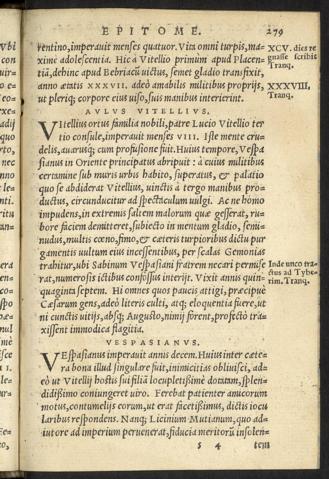 EPITOME. 279
rentino, imperauit menses quatuor. Vita omni turpis, ma-
xime adolescentia. Hic a Vitellio primùm apud Placen-
tiã, dehinc apud Bebriacũ victus, semet gladio transfixit,
anno ætatis XXXVII. adeò amabilis militibus proprijs,
ut pleriq; corpore eius uiso, suis manibus interierint.
XCV. dies re
gnasse scribit
Tranq.
XXXVIII,
Tranq.
AVLVS VITELLIVS.
VItellius ortus familia nobili, patre Lucio Vitellio ter
tio consule, imperauit menses VIII. Iste mente cru-
delis, auarusq; cum profusione fuit. Huius tempore, Vespa
sianus in Oriente principatus abripuit: à cuius militibus
certamine sub muris urbis habito, superatus, & palatio
quo se abdiderat Vitellius, uinctis à tergo manibus pro-
ductus, circunducitur ad spectaculum uulgi. Ac ne homo
impudens, in extremis saltem malorum quæ gesserat, ru-
bore faciem demitteret, subiecto in mentum gladio, semi-
nudus, multis cœno, fimo, & cæteris turpioribus dictu pur
gamentis uultum eius incessentibus, per scalas Gemonias
trahitur, ubi Sabinum Vespasiani fratrem necari permise
rat, numerosis ictibus confossus interijt. Vixit annis quin-
quaginta septem. Hi omnes quos paucis attigi, præcipuè
Cæsarum gens, adeò literis culti, atq; eloquentia fuere, ut
ni cunctis uitijs, absq; Augusto, nimij forent, profectò tra-
xissent immodica flagitia.
Inde unco tra-
ctus ad Tybe-
rim, Tranq.
VESPASIANVS.
VEspasianus imperauit annis decem. Huius inter cæte-
ra bona illud singulare fuit, inimicitias obliuisci, ad-
eò ut Vitellij hostis sui filiã locupletissimè dotatam, splen-
didissimo coniungeret uiro. Ferebat patienter amicorum
motus, contumelijs eorum, ut erat facetissimus, dictis iocu
laribus respondens. Nanq; Licinium Mutianum, quo ad-
iutore ad imperium peruenerat, fiducia meritorũ insolen-
s 4 tem